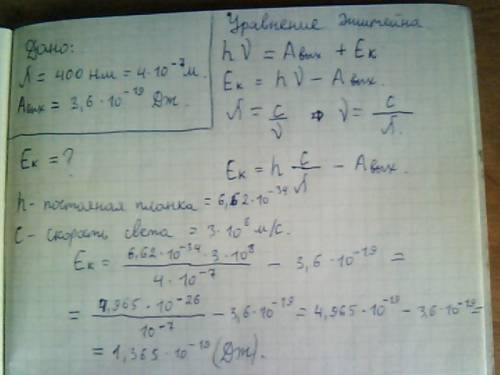 Дано:
λ = 400 нм = 4·10⁻⁷ м.
Aвых = 3,6·10⁻¹⁹ Дж.
Eк = ?
Уравнение Энштейна
hν = Aвых + Eк
Eк = hν − Aвых.
λ = c/ν ⇒ ν = c/λ.
Eк = h c/λ − Aвых.
h - постоянная планка = 6,62·10⁻³⁴
C - скорость света = 3·10⁸ м/с.
Eк = (6,62·10⁻³⁴·3·10⁸)/(4·10⁻⁷) − 3,6·10⁻¹⁹ =
= (4,965·10⁻²⁶)/(10⁻⁷) − 3,6·10⁻¹⁹ = 4,965·10⁻¹⁹ − 3,6·10⁻¹⁹ =
= 1,365·10⁻¹⁹ (Дж).